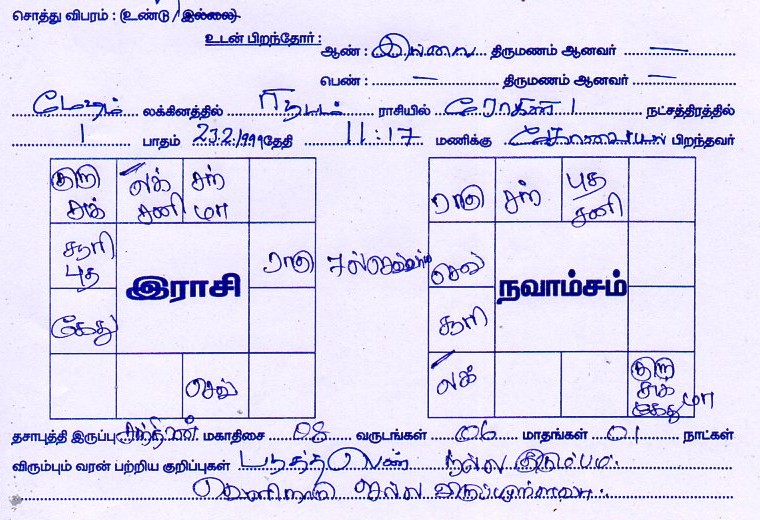 சொத்து விபரம் : (உண்டு / இல்லை)
உடன் பிறந்தோர் :
ஆண் : இல்லை திருமணம் ஆனவர் —
பெண் : — திருமணம் ஆனவர் —
மேஷம் லக்கினத்தில் ரிஷபம் ராசியில் ரோகிணி 1 நட்சத்திரத்தில்
1 பாதம் 23.2.1999 தேதி 11:17 மணிக்கு பிறந்தவர்
குரு லக் சந்
சுக் சனி மா
சூரி
புத
ராகு
இராசி
கேது
செவ்
ராகு சந் புத
சனி
செவ்
நவாம்சம்
சூரி
லக் குரு
சுக்
கேது மா
தசாபுத்தி இருப்பு சந்திரன் மகாதிசை 08 வருடங்கள் 06 மாதங்கள் 01 நாட்கள்
விரும்பும் வரன் பற்றிய குறிப்புகள் படித்த பெண் நல்ல குடும்பம்.
வெளிநாடு செல்ல